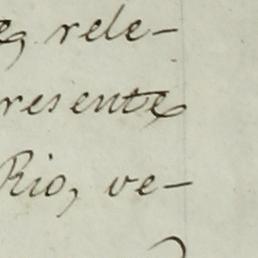 rele-
resente
Rio, ve-